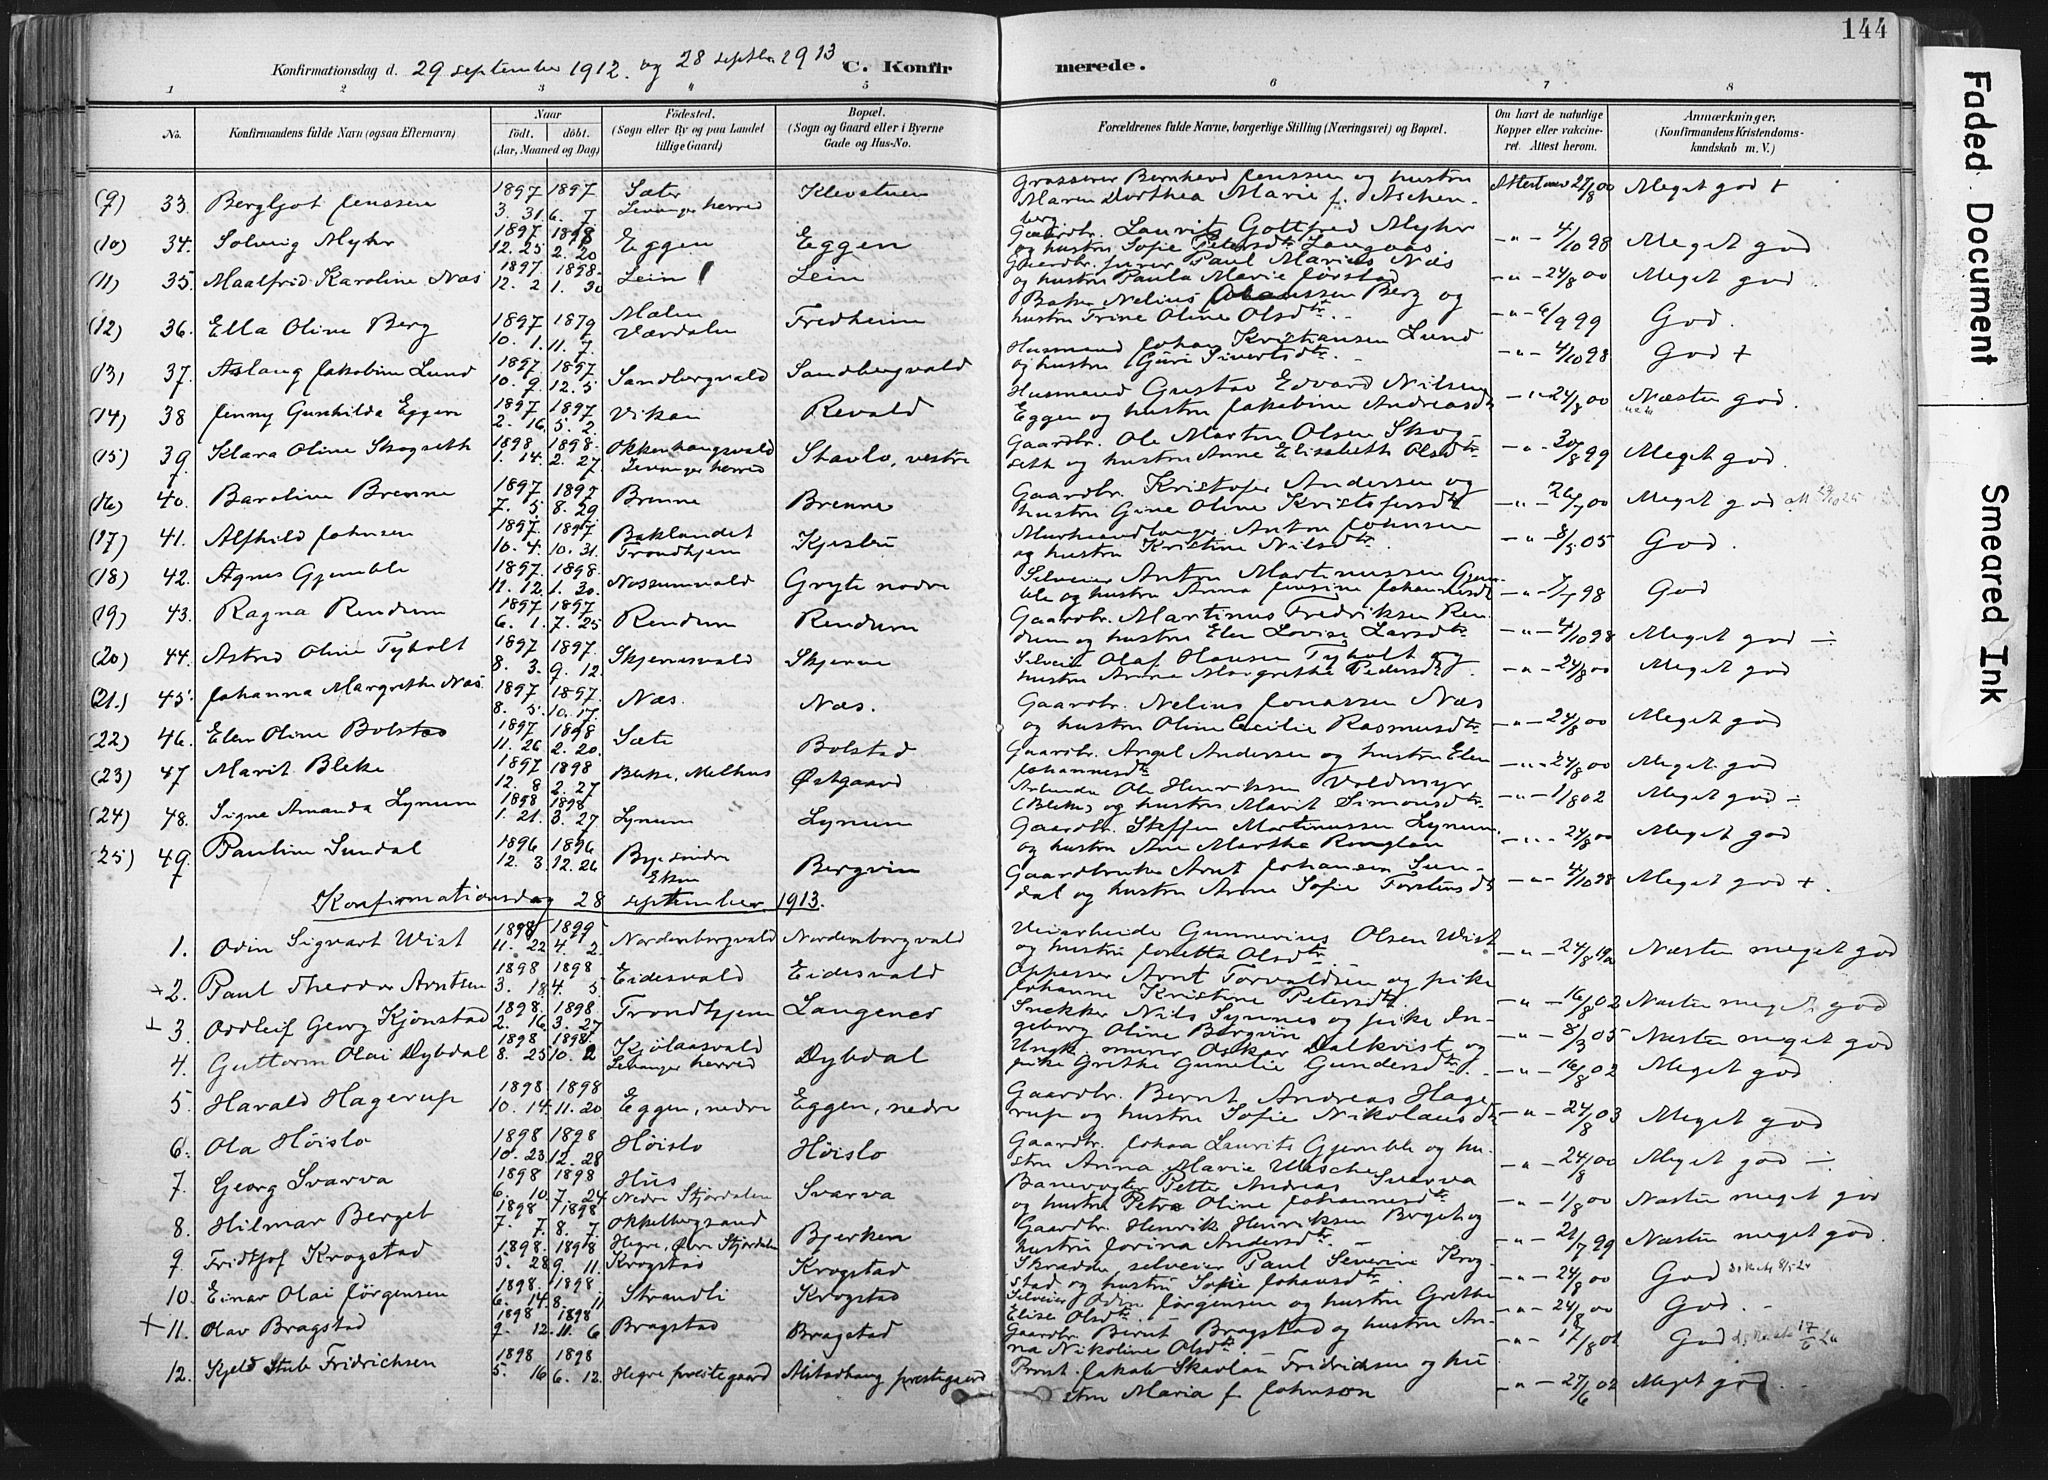 144
Konfirmationsdag d. 29 september 1912. og 28 septbr 1913 C. Konfir merede.
1 2 3 4 5 6 7 8
No. Konfirmandens fulde Navn (ogsaa Efternavn) Naar født. døbt. (Aar, Maaned og Dag) Fødested. (Sogn eller By og paa Landet tillige Gaard) Bopæl. (Sogn og Gaard eller i Byerne Gade og Hus-No. Forældrenes fulde Navne, borgerlige Stilling (Næringsvei) og Bopæl. Om havt de naturlige Kopper eller vakcineret. Attest herom. Anmærkninger. (Konfirmandens Kristendomskundskab m. V.)
(9) 33. Bergljot Jenssen 1897 3. 31. 1897 6. 7 Sæter Levanger herred Klevstuen Grosserer Bernhard Jenssen og hustru Maren Dorthea Marie f. Aschenberg Attest 27/8 00 Meget god +
(10) 34. Solveig Myhr 1897 12. 25 1898 2. 20 Eggen Eggen Gaardbr. Laurits Gottfred Myhr og hustru Sofie Petersdtr Langaas -"- 4/10 98 Meget god
(11) 35. Maalfrid Karoline Næs 1897 12. 2 1898. 1. 30 Lein Lein Gaardbr. Paul Marius Næs og hustru Paula Marie Jørstad -"- 24/8 00 Meget god
(12) 36. Ella Oline Berg 1897 10. 1. 1879 11. 7. Mælen Værdalen Fredheim Baker Nelius Johanssen Berg og hustru Trine Oline Olsdtr. -"- 6/9 99 God.
(13) 37. Aslaug Jakobine Lund 1897 10. 9. 1897 12. 5 Sandbergvald Sandbergvald Husmand Johan Kristiansen Lund og hustru Guri Sivertsdtr. -"- 4/10 98 God +
(14) 38 Jenny Gunhilda Eggen 1897 2. 16. 1897 5. 2. Vikan Revald Husmand Gustav Edvard Nilsen Eggen og hustru Jakobine Andreasdtr -"- 24/8 00 Næsten god.
(15) 39. Klara Oline Skogseth 1898 1. 14. 1898. 2. 27 Okkenhaugsvald Levanger herred Stavlo, vestre Gaardbr. Ole Martin Olsen Skogseth og hustru Anne Elisabeth Olsdtr -"- 30/8 99 Meget god.
(16) 40. Baroline Brenne 1897 7. 5. 1897 8. 29 Brenne Brenne Gaardbr. Kristofer Andersen og hustru Gine Oline Kristofersdtr -"- 26/7 00 Meget god
(17) 41. Alfhild Johnsen 1897. 10. 4. 1897 10. 31. Baklandet Trondhjem Kjesbu Murhaandlanger Anton Johnsen og hustru Kristine Nilsdtr. -"- 8/5 05 God.
(18) 42. Agnes Gjemble 1897. 11. 12. 1898. 1. 30. Nossumvald Gryte nødre Selveier Anton Martinussen Gjemble og hustru Anna Jensine Johannesdtr -"- 7/7 98 God
(19) 43. Ragna Rendum 1897 6. 1. 1897 7. 25 Rendum Rendum Gaardbr. Martinus Fredriksen Rendum og hustru Elen Lovise Larsdtr -"- 4/10 98 Meget god ÷
(20) 44. Astrid Oline Tyholt 1897 8. 3. 1897. 9. 12. Skjervesvald Skjerve Selveier Olaf Hansen Tyholt og hustru Anna Margrethe Pedersdtr -"- 24/8 00 Meget god
(21.) 45. Johanna Margrethe Næs 1897 8. 5. 1897. 10. 17. Næs. Næs. Gaardbr. Nelius Jonassen Næs og hustru Oline Cecilie Rasmusdtr -"- 24/8 00 Meget god
(22) 46. Elen Oline Bolstad 1897 11. 26 1898 2. 20. Sæte Bolstad Gaardbr. Angel Andersen og hustru Elen Johannesdtr -"- 24/8 00 Meget god
(23) 47 Marit Bleke 1897 12. 8 1898 2. 27 Bleke, Melhus Østgaard Arbeider Ole Henriksen Voldmyr (Bleke) og hustru Marit Simonsdtr. -"- 1/8 02 Meget god ÷
(24) 48. Signe Amanda Lynum 1898 1. 21. 1898 3. 27 Lynum Lynum Gaardbr. Steffen Martinussen Lynum og hustru Ane Martha Ronglan -"- 24/8 00 Meget god
(25) 49. Pauline Sundal 1896 12. 3 1896 12. 26 Bye Ekne Bergvin Gaardbruker Arnt Johansen Sundal og hustru Anne Sofie Torstensdtr -"- 4/10 98 Meget god +.
Konfirmationsdag 28 september 1913.
1. Odin Sigvart Wist 1898 11. 22 1899 4. 2. Nordenborgvald Nordenborgvald Veiarbeide Gunnerius Olsen Wist og hustru Jonetta Olsdtr. -"- 24/8 1900 Næsten meget god
+2. Paul Theodor Arntsen 1898 3. 18. 1898 4. 5 Eidesvald Eidesvald Oppasser Arnt Torvaldsen og pike Johanne Kristine Petersdtr. -"- 16/8 02 Næsten meget god
+ 3. Oddleif Georg Kjønstad 1898. 2. 16 1898. 3. 27 Trondhjem Langenes Snekker Nils Synnes og pike Ingeborg Oline Bergvin -"- 8/3 05 Næsten meget god
4. Guttorm Olai Dybdal 1898 8. 25 1898. 10. 2 Kjølaasvald Levanger herred Dybdal Ungk. murer Oskar Dalkvist og pike Grethe Gunelie Gundersdtr. -"- 16/8 02 Meget god
5. Harald Hagerup 1898 10. 14. 1898 11. 20 Eggen, nedre Eggen, nedre Gaardbr. Bernt Andreas Hagerup og hustru Sofie Nikolausdtr -"- 24/8 03 Meget god
6. Ola Høislo 1898 10. 23 1898 12. 28 Høislo Høislo Gaardbr. Johan Laurits Gjemble og hustru Anna Marie Wasche -"- 24/8 00 Meget god ÷.
7. Georg Svarva 1898 6. 10. 1898 7. 24 Hus Nedre Stjørdalen Svarva Banevogter Petter Andreas Svarva og hustru Petra Oline Johannesdtr -"- 1/8 00 Næsten meget god
8. Hilmar Berget 1898 7. 7. 1898 8. 7. Okkelbergsaasd Hegre, Øvre Stjørdalen Bjerken Gaardbr. Henrik Henriksen Berget og hustru Jorina Andersdtr -"- 21/7 99 Næsten meget god.
9. Fridtjof Krogstad 1898. 5. 28 1898 9. 11. Krogstad Krogstad Skrædder, selveier Paul Severin Krogstad og hustru Sofie Johansdtr. -"- 24/8 00 God
10. Einar Olai Jørgensen 1898. 6. 14. 1898 8. 11 Strandli Krogstad Selveier Odin Jørgensen og hustru Grethe Elise Olsdtr. -"- 24/8 00 God.
+ 11. Olav Bragstad 1898 9. 12. 1898 11. 6 Bragstad Bragstad Gaardbr. Bernt Bragstad og hustru Anna Nikoline Olsdtr. -"- 17/8 01 God
12. Kjeld Stub Fridrichsen 1898 5. 16 1898 6. 12. Hegre prestegaard Alstadhaug prestegaard Provst Jakob Skavlan Fridrichsen og hustru Maria f. Johnson -"- 27/6 02 Meget god.
Faded Document
Smeared Ink